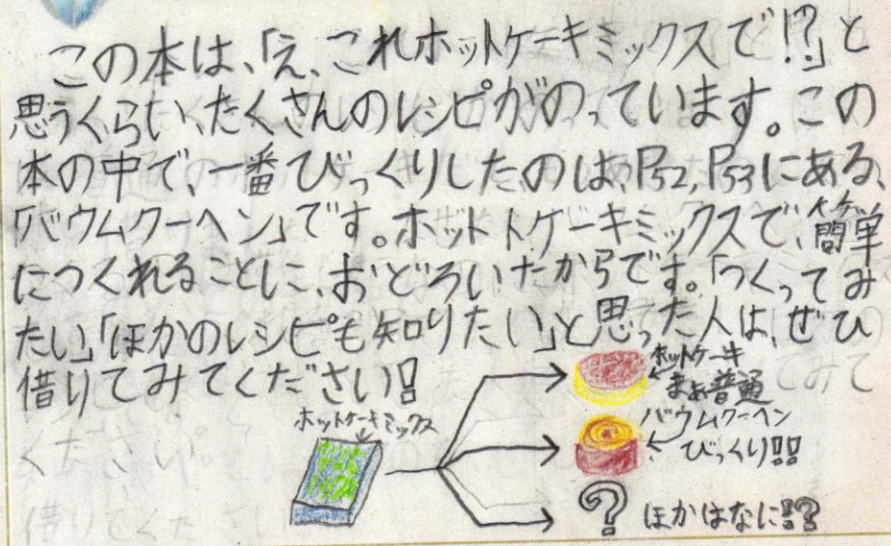 この本は、「え、これホットケーキミックスで!?」と
思うくらい、たくさんのレシピがのっています。この
本の中で、一番びっくりしたのは、P52,P53にある、
「バウムクーヘン」です。ホットケーキミックスで、簡単
につくれることに、おどろいたからです。「つくってみ
たい」「ほかのレシピも知りたい」と思った人は、ぜひ
借りてみてください!
ホットケーキ
まあ普通
ホットケーキミックス
バウムクーヘン
びっくり!!
? ほかはなに!?